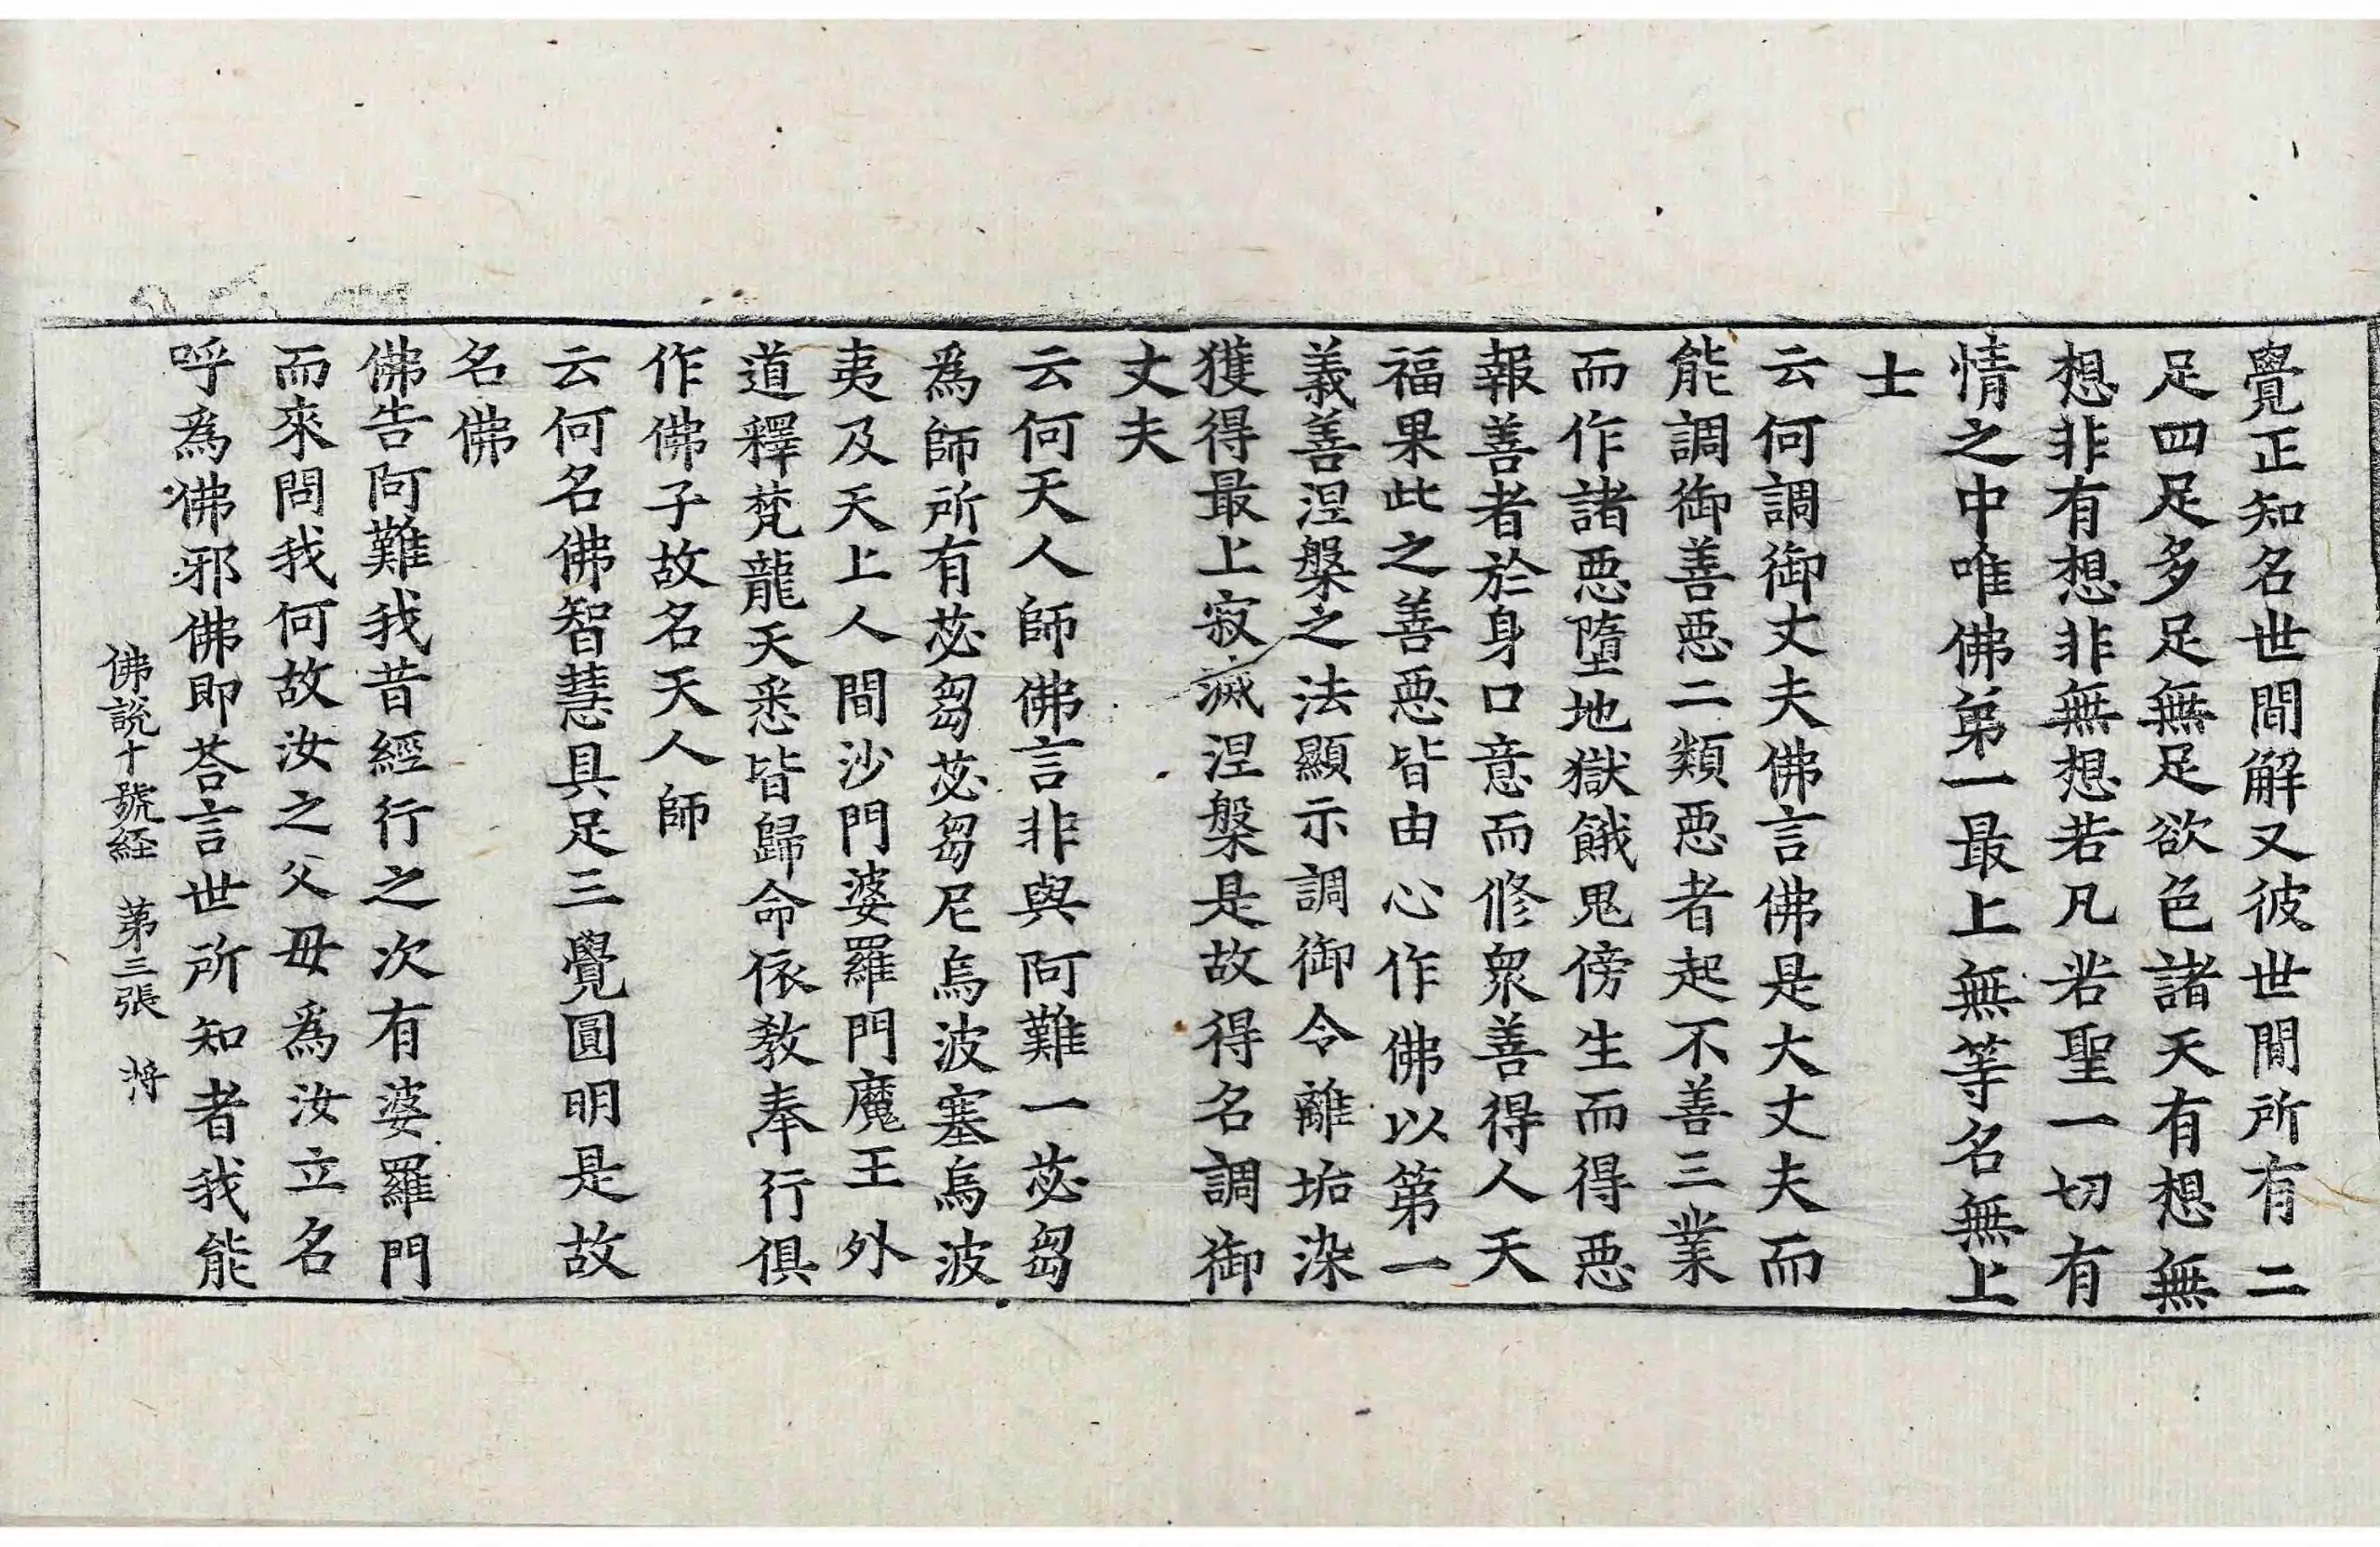 覺正知名世間解又彼世間所有二
足四足多足無足欲色諸天有想無
想非有想非無想若凡若聖一切有
情之中唯佛苐一最上無等名無上
士
云何調御丈夫佛言佛是大丈夫而
能調御善惡二類惡者起不善三業
而作諸惡墮地獄餓鬼傍生而得惡
報善者於身口意而修衆善得人天
福果此之善惡皆由心作佛以第一
義善涅槃之法顯示調御令離垢染
獲得最上寂滅涅槃是故得名調御
丈夫
云何天人師佛言非與阿難一苾芻
爲師所有苾芻苾芻尼烏波塞烏波
夷及天上人間沙門婆羅門魔王外
道釋梵龍天悉皆歸命依敎奉行俱
作佛子故名天人師
云何名佛智慧具足三覺圓明是故
名佛
佛告阿難我昔經行之次有婆羅門
而來問我何故汝之父母爲汝立名
呼爲佛邪佛即荅言世所知者我能
佛說十號経 苐三張 將